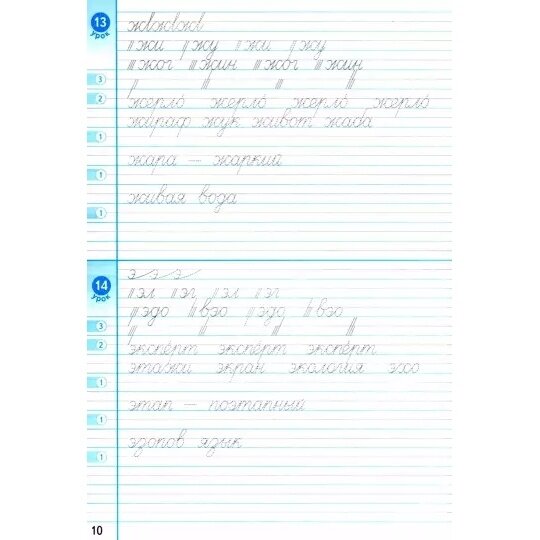 13
урок
жжж
жи жу жи жу
жог жин жог жин
3
2
жерло́ жерло́ жерло́ жерло́
жираф жук живот жаба
1
жара – жаркий
1
живая вода
1
14
урок
э э э
эл эг эл эг
эдо вэо эдо вэо
3
2
экспе́рт экспе́рт экспе́рт
этажи экран экология эхо
1
этап – поэтапный
1
эзопов язык
1
10